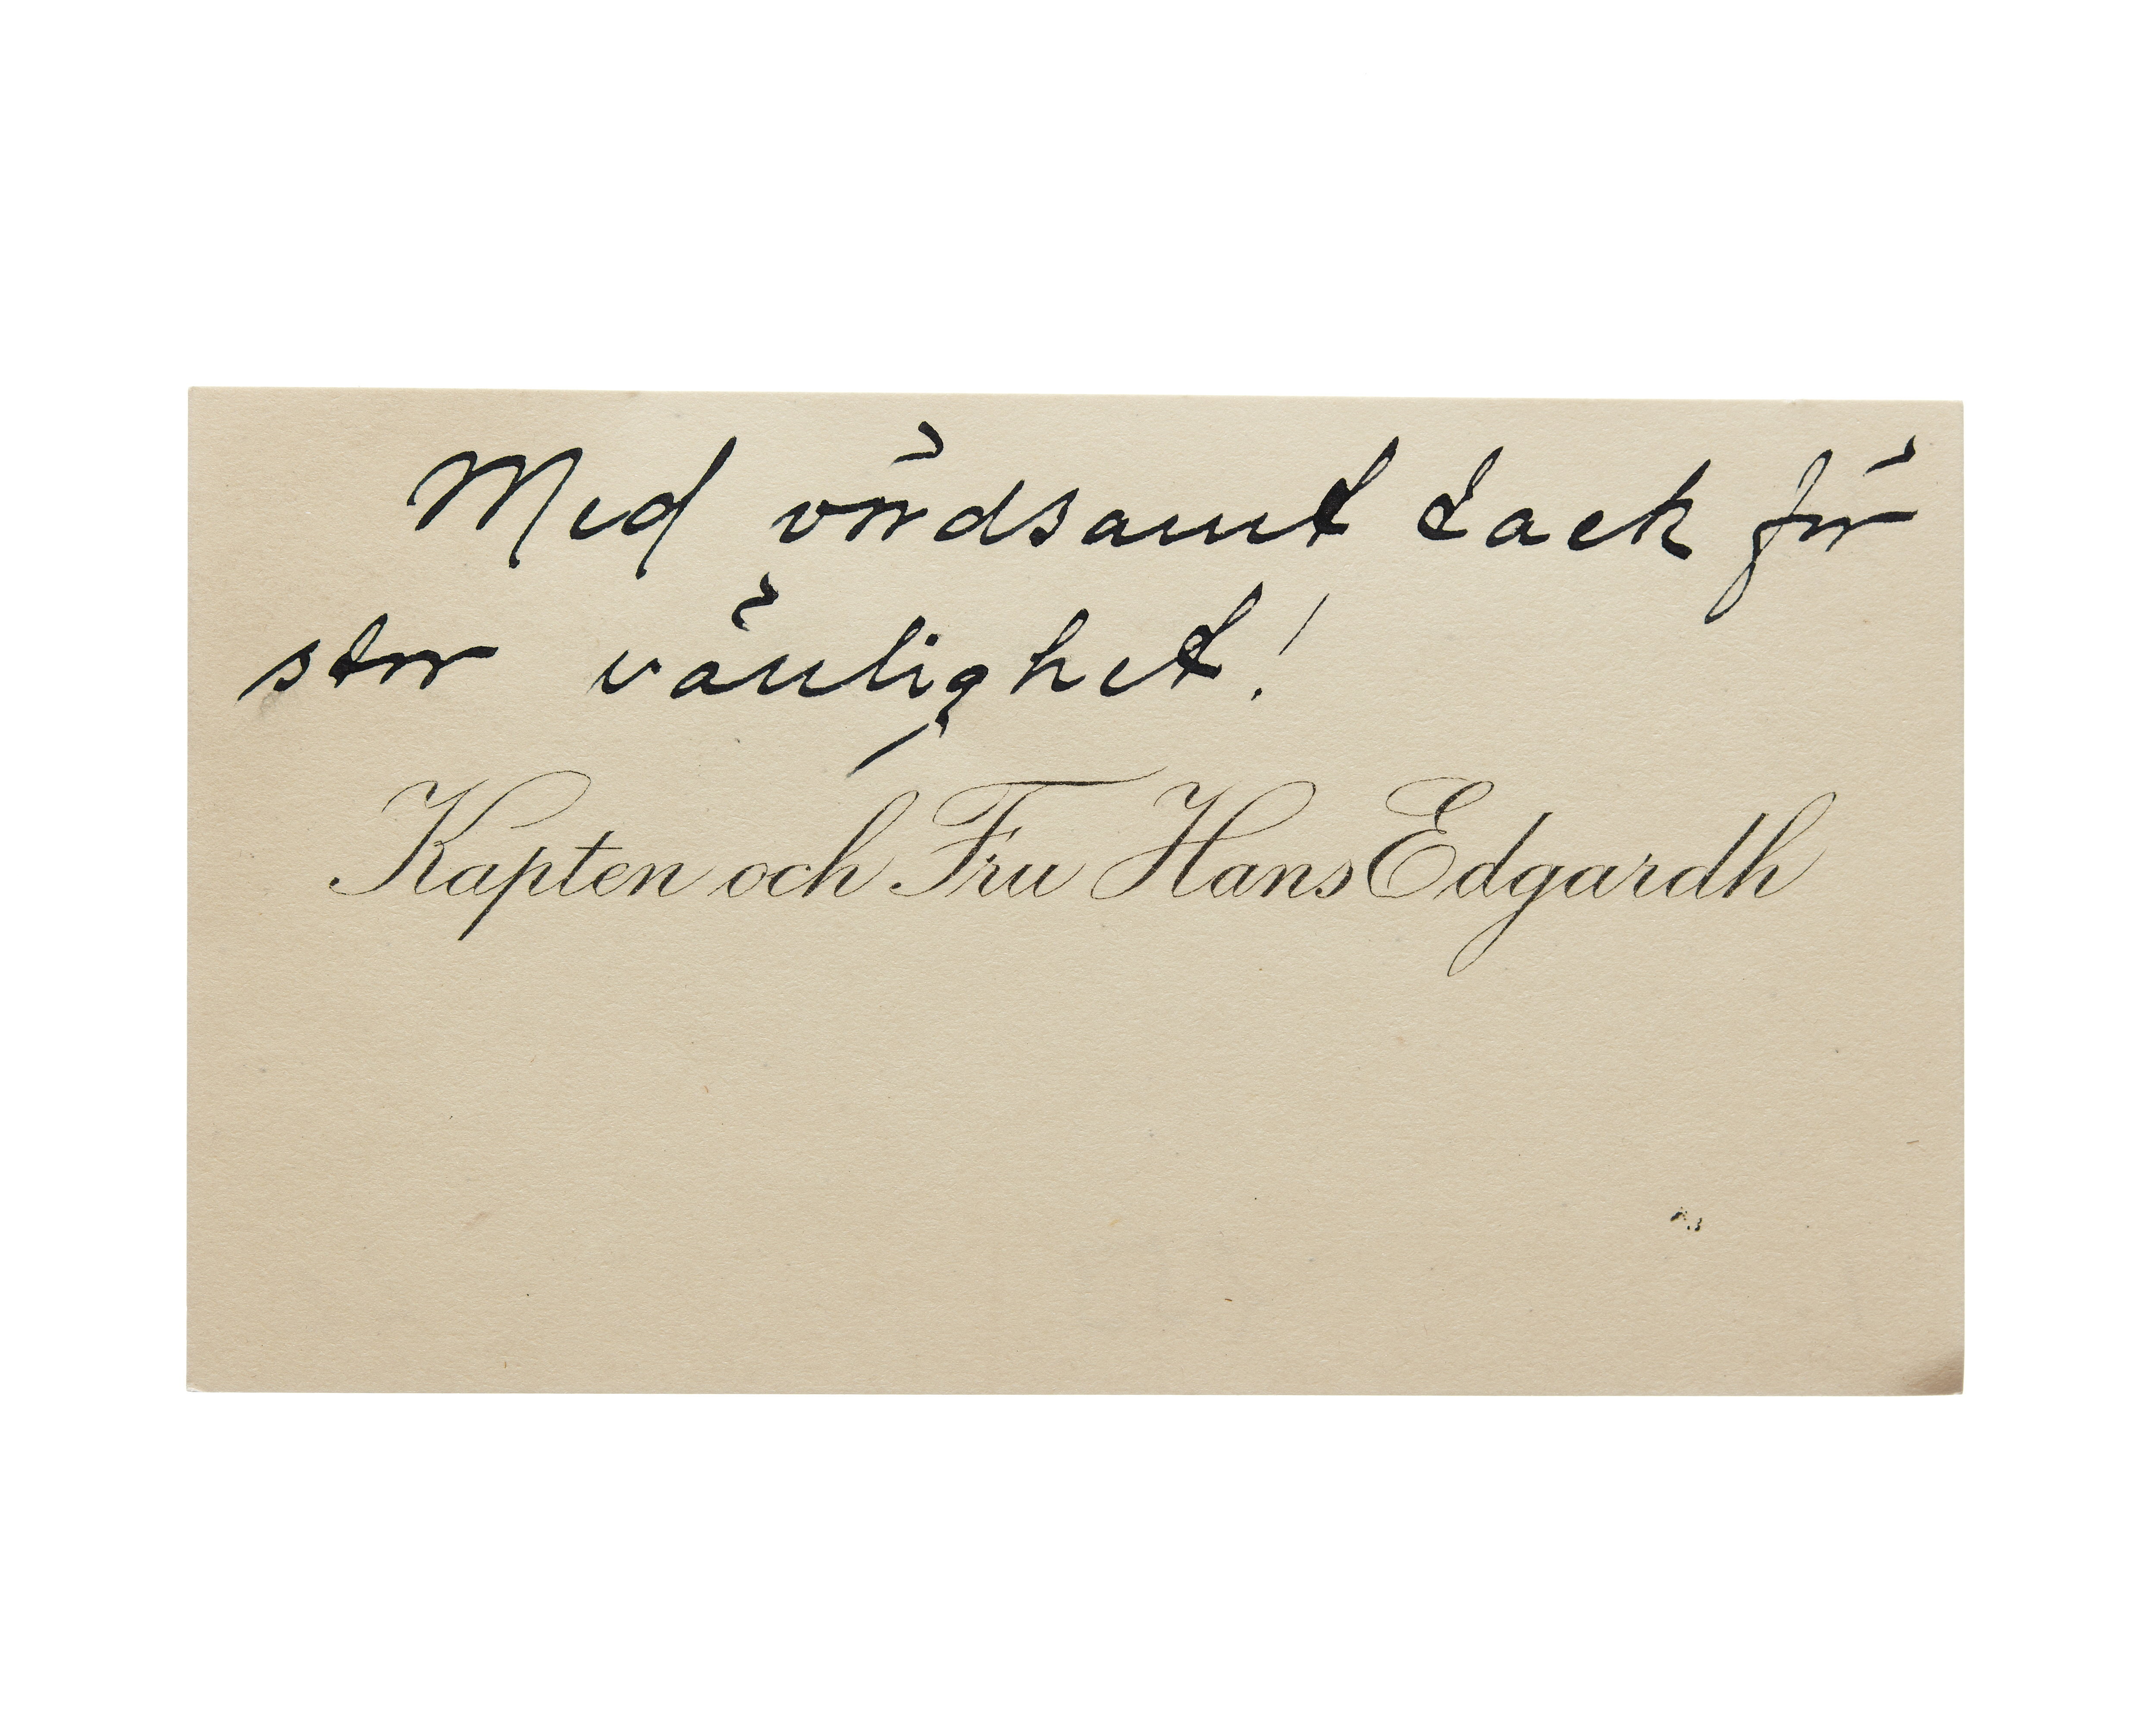 Med vördsamt tack för
stor vänlighet!
Kapten och Fru Hans Edgardh